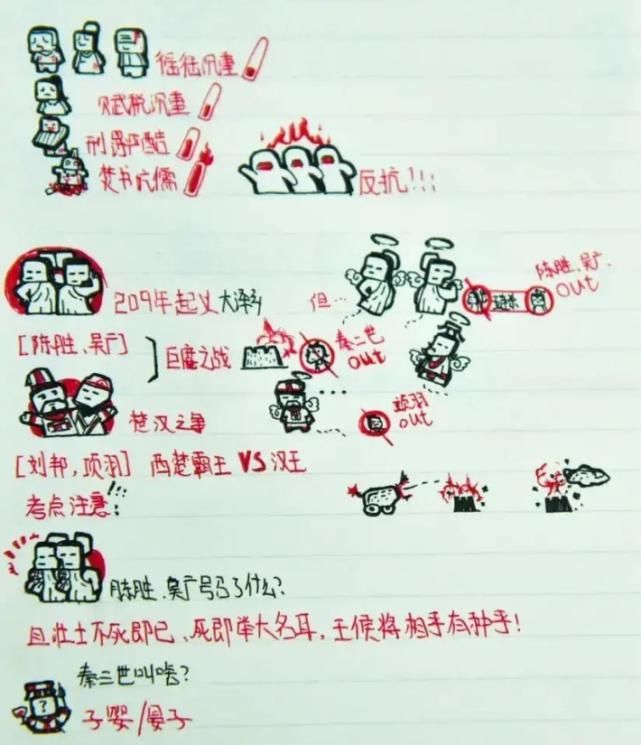 徭役沉重
赋税沉重
刑罚严酷
焚书坑儒
反抗!!!
209年起义 大泽乡
但…
陈胜、吴广
out
[陈胜,吴广]
巨鹿之战
秦二世
out
楚汉之争
项羽
out
[刘邦,项羽] 西楚霸王 VS 汉王
考点注意!!!:
陈胜、吴广号召了什么?
且壮士不死即已、死即举大名耳,王侯将相乎有种乎!
秦三世叫啥?
?
子婴/晏子